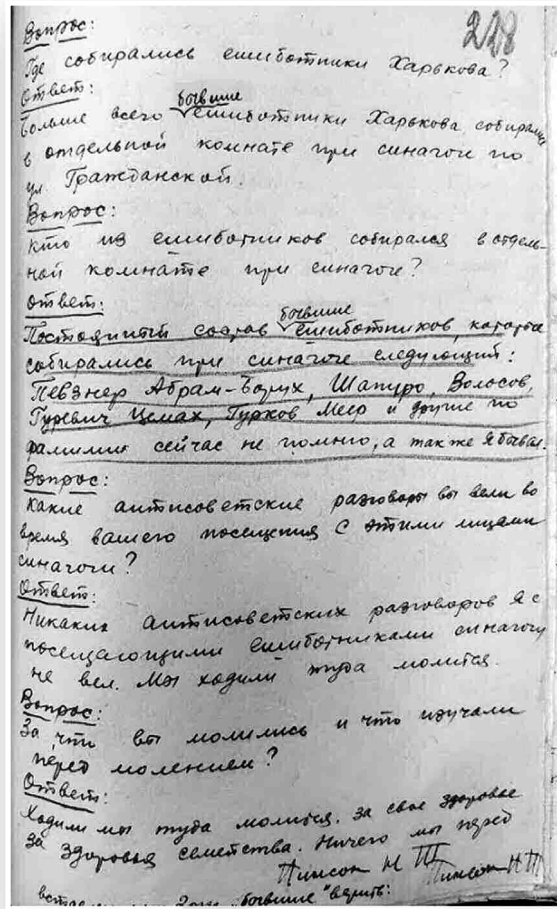 228
Вопрос:
Где собирались ешиботники Харькова?
Ответ:
Больше всего бывшие ешиботники Харькова собирались
в отдельной комнате при синагоги по
ул. Гражданской.
Вопрос:
Кто из ешиботников собирался в отдель-
ной комнате при синагоге?
Ответ:
Постоянный состав бывшие ешиботников, которые
собирались при синагоге следующий:
Певзнер Абрам-Борух, Шапиро, Волосов,
Гуревич Цемах, Гурков Меер и другие по
фамилии сейчас не помню, а также я бывал.
Вопрос:
Какие антисоветские разговоры вы вели во
время вашего посещения с этими лицами
синагоги?
Ответ:
Никаких антисоветских разговоров я с
посещающими ешиботниками синагогу
не вел. Мы ходили туда молится.
Вопрос:
За что вы молились и что изучали
перед молением?
Ответ:
Ходили мы туда молится. за свое здоровье
за здоровья семейства. Ничего мы перед
Пинсон Н Т Пинсон Н Т
"бывшие" верить: